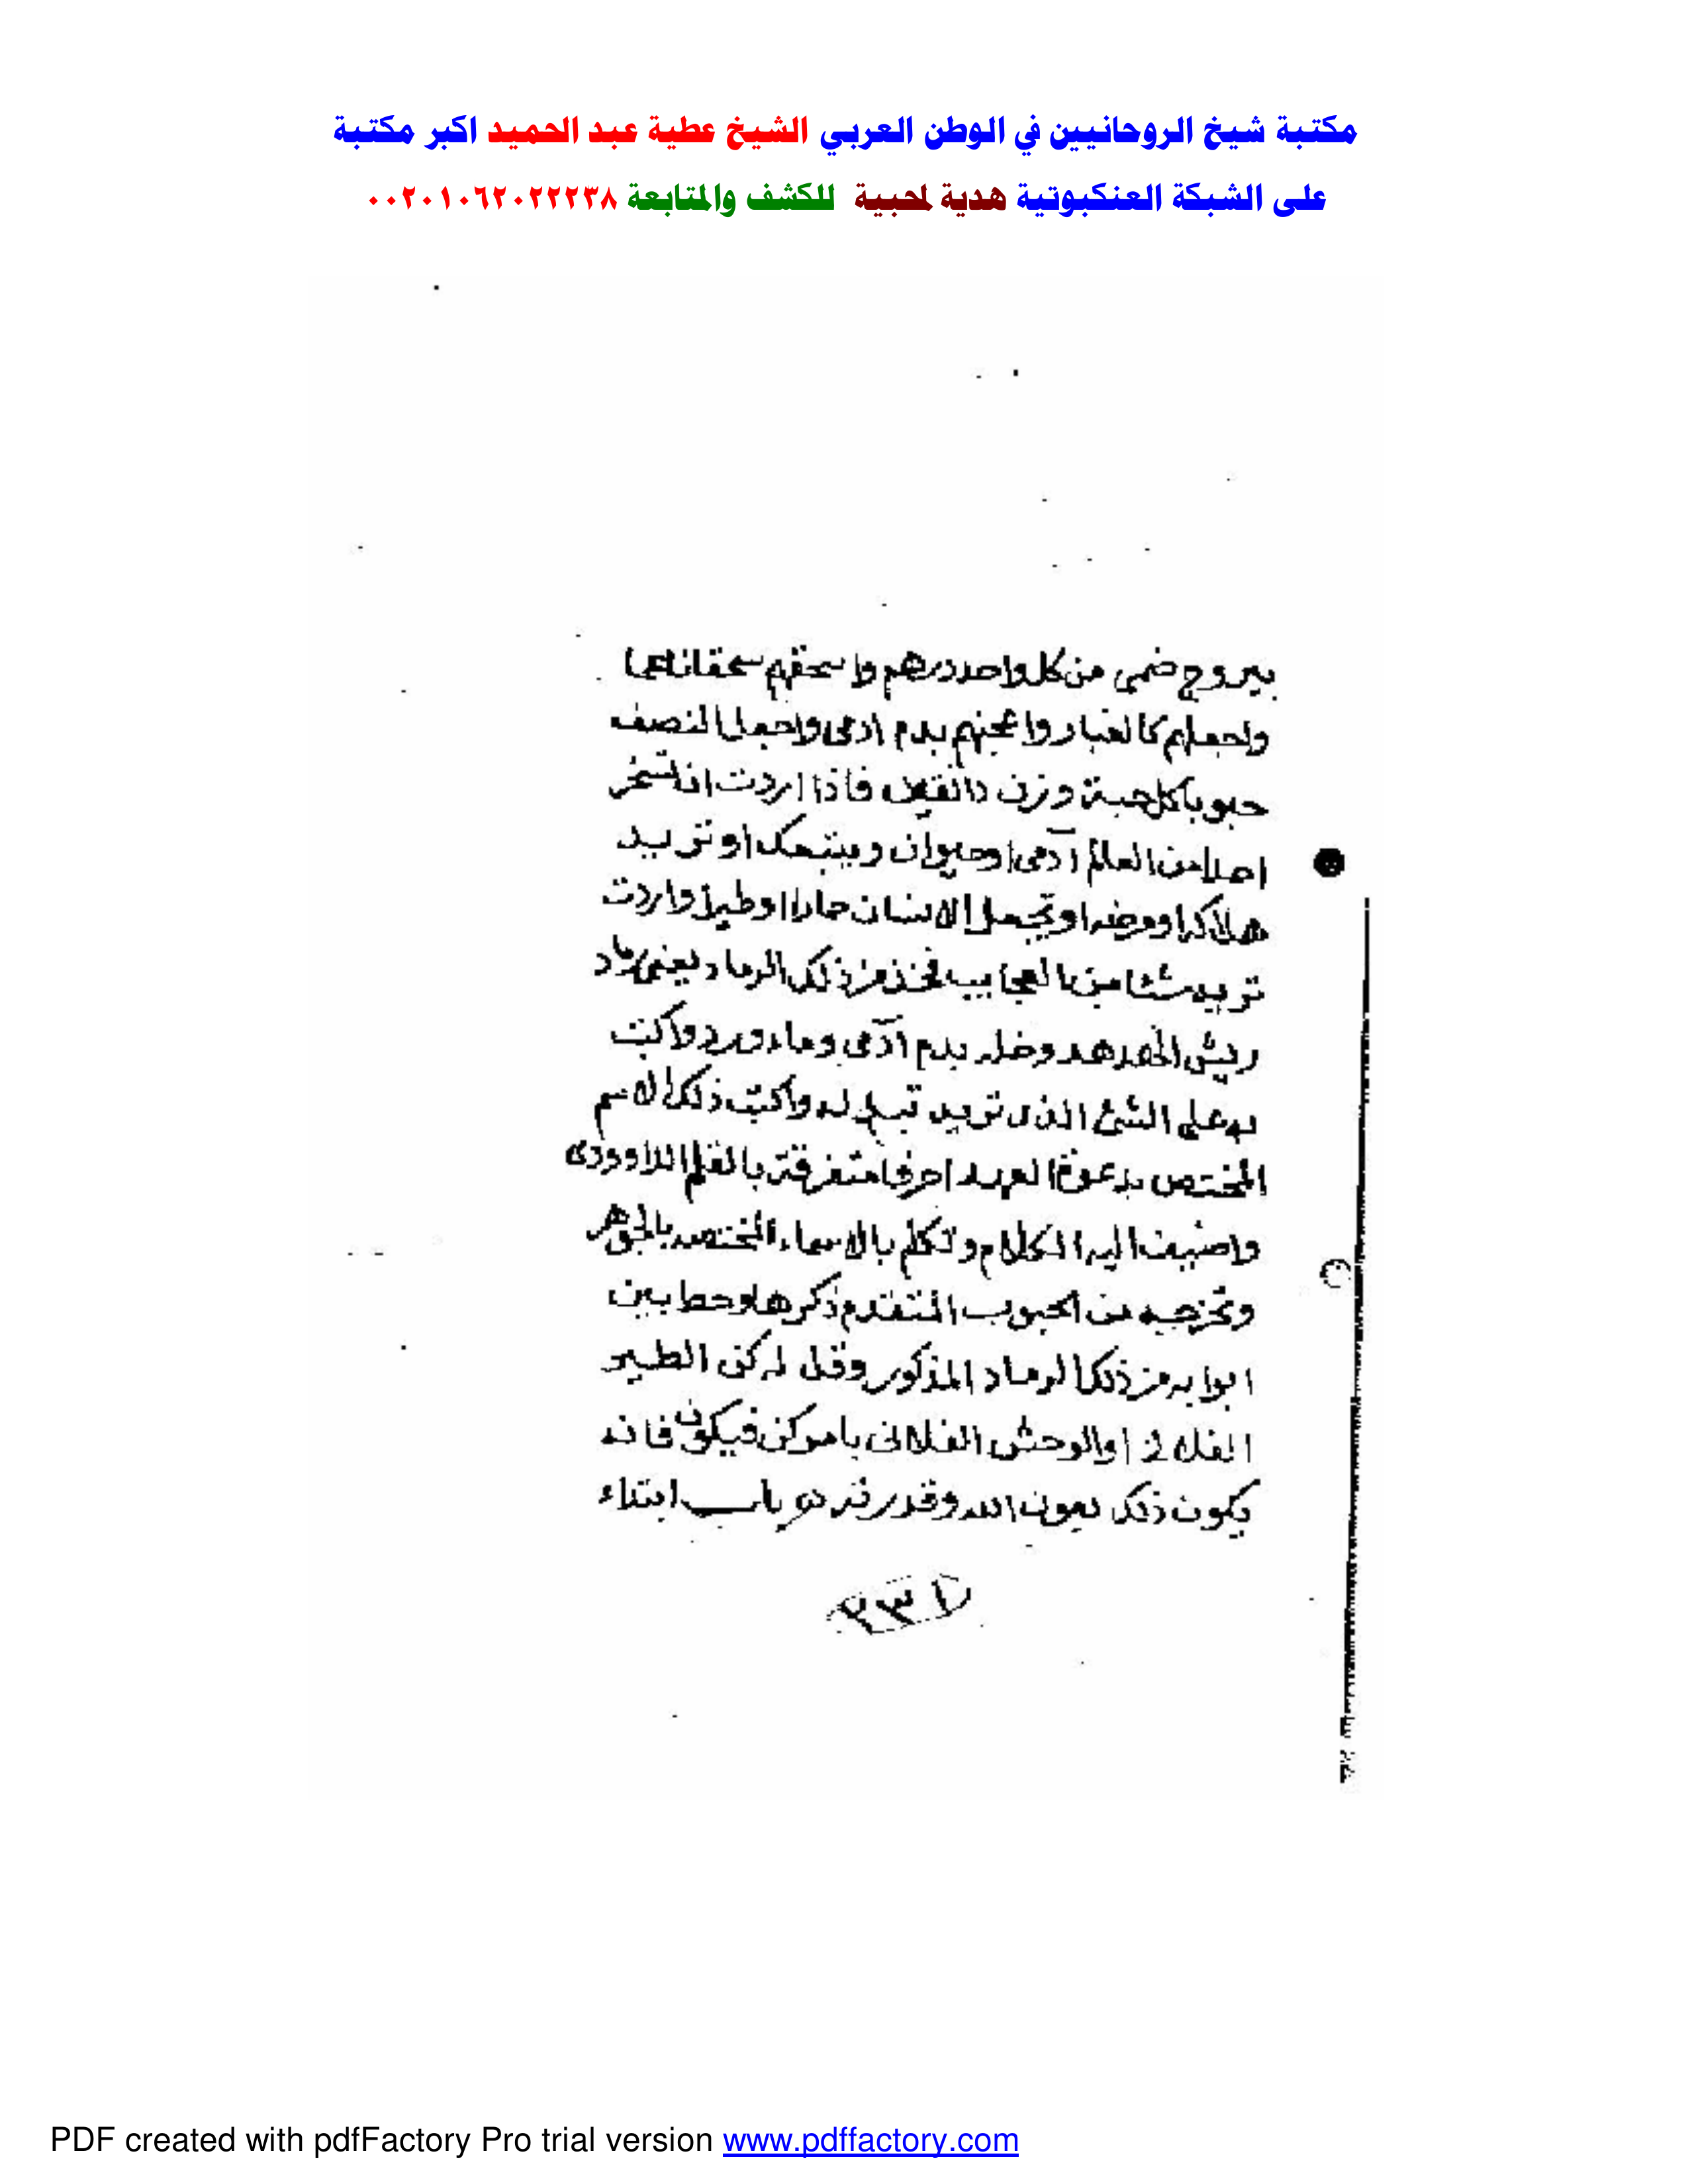 مكتبة شيخ الروحانيين في الوطن العربي الشيخ عطية عبد الحميد اكبر مكتبة
على الشبكة العنكبوتية هدية لمحبية للكشف والمتابعة ٠٠٢٠١٠٦٢٠٢٢٢٣٨
يبروح ضمى من كل واحد درهم واسحقهم سحقا ناعما
واجعلهم كالغبار واعجنهم بدم ادمى واجعل النصف
حبوبا كل حبة وزن دانقين فاذا اردت ان تسخر
احدا من العالم آدمى او حيوان ويتبعك او تريد
هلاكه او مرضه او تجعل الانسان حمارا او طيرا واردت
تريد شئا من العجايب فخذ من ذلك الرماد يعنى رماد
ريش الهدهد وخله بدم آدمى وماء ورد واكتب
به على الشئ الذى تريد تبدله واكتب ذلك الاسم
المختص بدعوة العهد احرفا متفرقة بالقلم الداوودى
واضيف اليه الكلام وتكلم بالاسماء المختصه بالجوهر
وتخرجه من الحبوب المتقدم ذكرها وحط بين
ابوابه من ذلك الرماد المذكور وقل له كن الطير
الفلانى او الوحش الفلانى بامر كن فيكون فانه
يكون ذلك بعون الله وقدرته باب ابتداء
٢٣١
PDF created with pdfFactory Pro trial version www.pdffactory.com